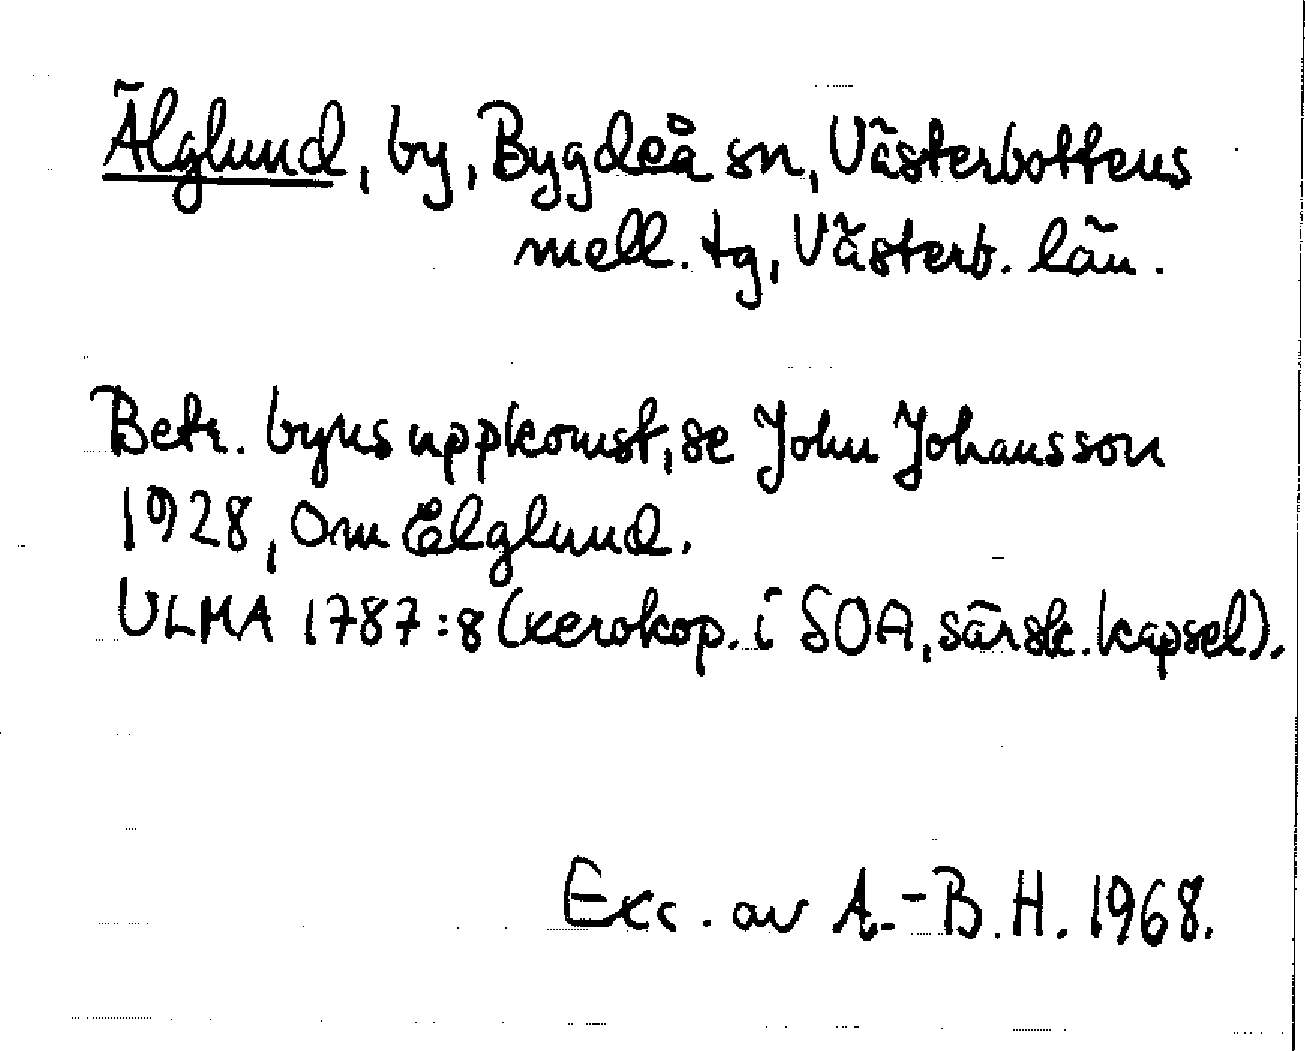 Älglund, by, Bygdeå sn, Västerbottens
mell. tg, Västerb. län.
Betr. byns uppkomst, se John Johansson
1928, Om Elglund.
ULMA 1787:8 (xerokop. i SOA, särsk. kapsel).
Exc. av A.-B.H. 1968.